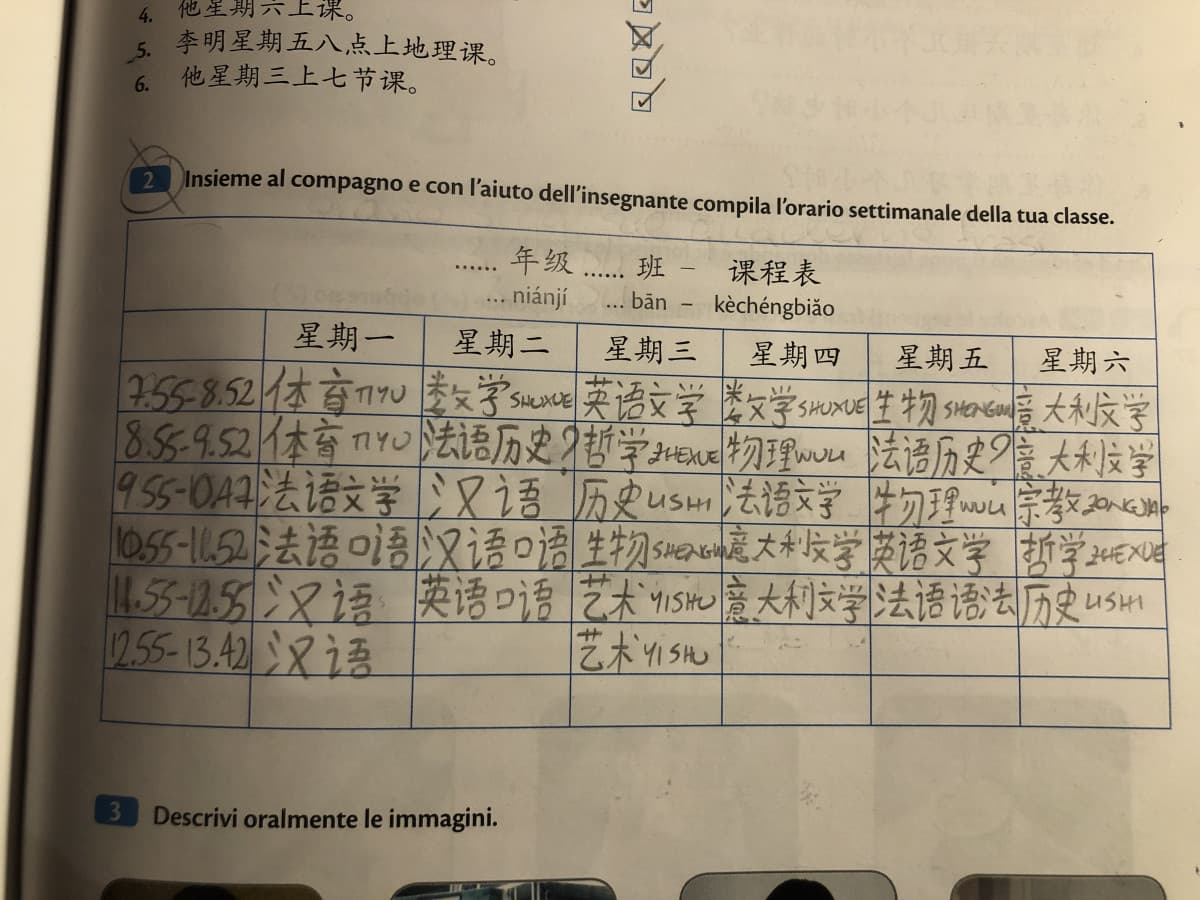 4. 他星期六上课。
5. 李明星期五八点上地理课。
6. 他星期三上七节课。
2 Insieme al compagno e con l'aiuto dell'insegnante compila l'orario settimanale della tua classe.
…… 年级 …… 班 – 课程表
… niánjí … bān – kèchéngbiǎo
星期一 星期二 星期三 星期四 星期五 星期六
7.55-8.52 体育 TIYU 数学 SHUXUE 英语文学 数学 SHUXUE 生物 SHENGWU 意大利文学
8.55-9.52 体育 TIYU 法语历史? 哲学 ZHEXUE 物理 WULI 法语历史? 意大利文学
9.55-10.47 法语文学 汉语 历史 LISHI 法语文学 物理 WULI 宗教 ZONGJIAO
10.55-11.52 法语口语 汉语口语 生物 SHENGWU 意大利文学 英语文学 哲学 ZHEXUE
11.55-12.55 汉语 英语口语 艺术 YISHU 意大利文学 法语语法 历史 LISHI
12.55-13.42 汉语 艺术 YISHU
3 Descrivi oralmente le immagini.